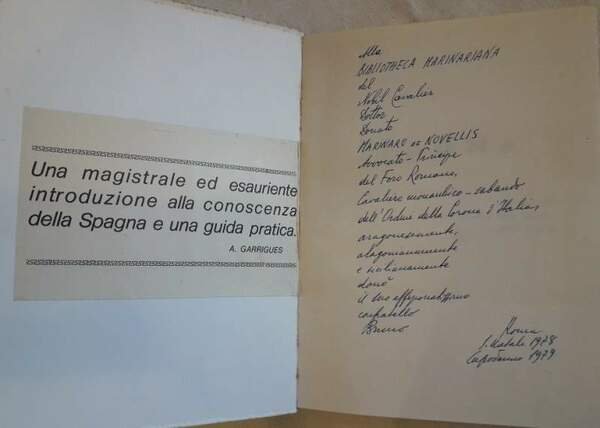 Una magistrale ed esauriente
introduzione alla conoscenza
della Spagna e una guida pratica.
A. GARRIGUES
Alla
BIBLIOTHECA MARINARIANA
del
Nobil Cavalier
Dottor
Donato
MARINARO DE NOVELLIS
Avvocato - Principe
del Foro Romano,
Cavaliere monarchico - sabaudo
dell'Ordine della Corona d'Italia,
aragonesemente,
e sicilianamente
donò
il suo affezionatissimo
confratello
Bruno
Roma
S. Natale 1978
Capodanno 1979